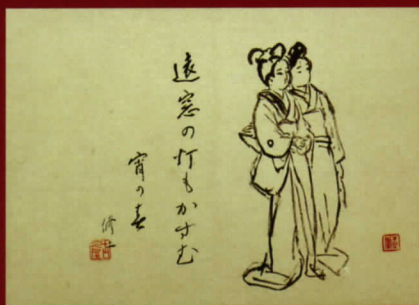 遠窓の灯もかすむ
宵の春